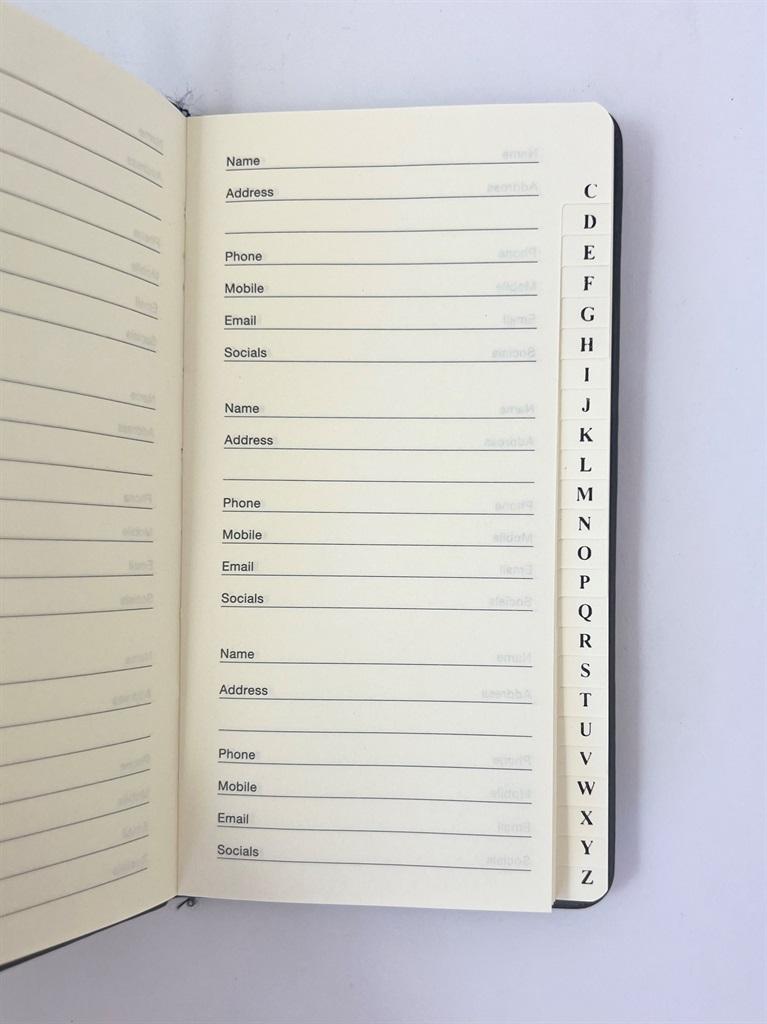 Name
Address
Phone
Mobile
Email
Socials
Name
Address
Phone
Mobile
Email
Socials
Name
Address
Phone
Mobile
Email
Socials
C
D
E
F
G
H
I
J
K
L
M
N
O
P
Q
R
S
T
U
V
W
X
Y
Z